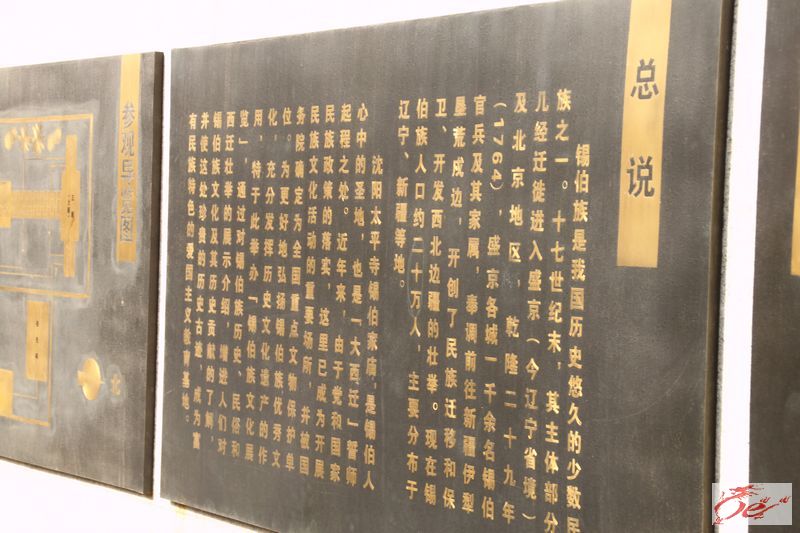 总说
锡伯族是我国历史悠久的少数民
族之一。十七世纪末，其主体部分
几经迁徙进入盛京（今辽宁省境）
及北京地区，乾隆二十九年
（1764），盛京各城一千余名锡伯
官兵及其家属，奉调前往新疆伊犁
垦荒戍边，开创了民族迁移和保
卫、开发西北边疆的壮举。现在锡
伯族人口约二十万人，主要分布于
辽宁、新疆等地。
沈阳太平寺锡伯家庙，是锡伯人
心中的圣地，也是「大西迁」誓师
起程之处。近年来，由于党和国家
民族政策的落实，这里已成为开展
民族文化活动的重要场所，并被国
务院确定为全国重点文物保护单
位。为更好地弘扬锡伯族优秀文
化，充分发挥历史文化遗产的作
用，特于此举办「锡伯族文化展
览」，通过对锡伯族历史、民俗和
西迁壮举的展示介绍，增进人们对
锡伯族文化及其历史贡献的了解，
并使这处珍贵的历史古迹，成为富
有民族特色的爱国主义教育基地。
参观导览图
北